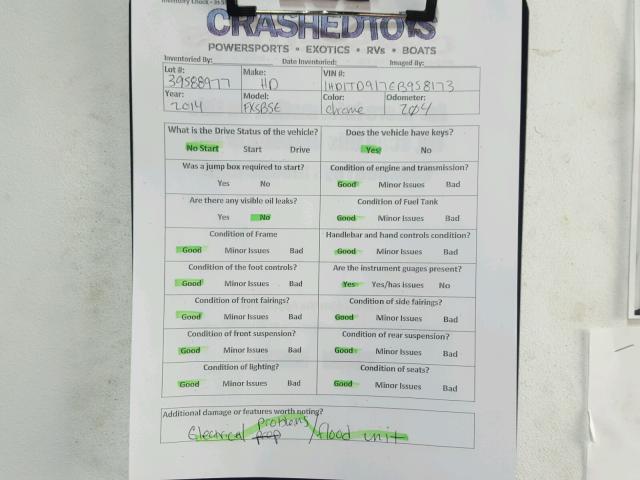 Inventory Check - In S
CRASHEDTOYS
POWERSPORTS • EXOTICS • RVs • BOATS
Inventoried By: Date Inventoried: Imaged By:
Lot #: Make: VIN #:
39588977 HD 1HD1TD917EB958173
Year: Model: Color: Odometer:
2014 FXSBSE Chrome 204
What is the Drive Status of the vehicle? Does the vehicle have keys?
No Start Start Drive Yes No
Was a jump box required to start? Condition of engine and transmission?
Yes No Good Minor Issues Bad
Are there any visible oil leaks? Condition of Fuel Tank
Yes No Good Minor Issues Bad
Condition of Frame Handlebar and hand controls condition?
Good Minor Issues Bad Good Minor Issues Bad
Condition of the foot controls? Are the instrument guages present?
Good Minor Issues Bad Yes Yes/has issues No
Condition of front fairings? Condition of side fairings?
Good Minor Issues Bad Good Minor Issues Bad
Condition of front suspension? Condition of rear suspension?
Good Minor Issues Bad Good Minor Issues Bad
Condition of lighting? Condition of seats?
Good Minor Issues Bad Good Minor Issues Bad
Additional damage or features worth noting?
Electrical problems / flood unit